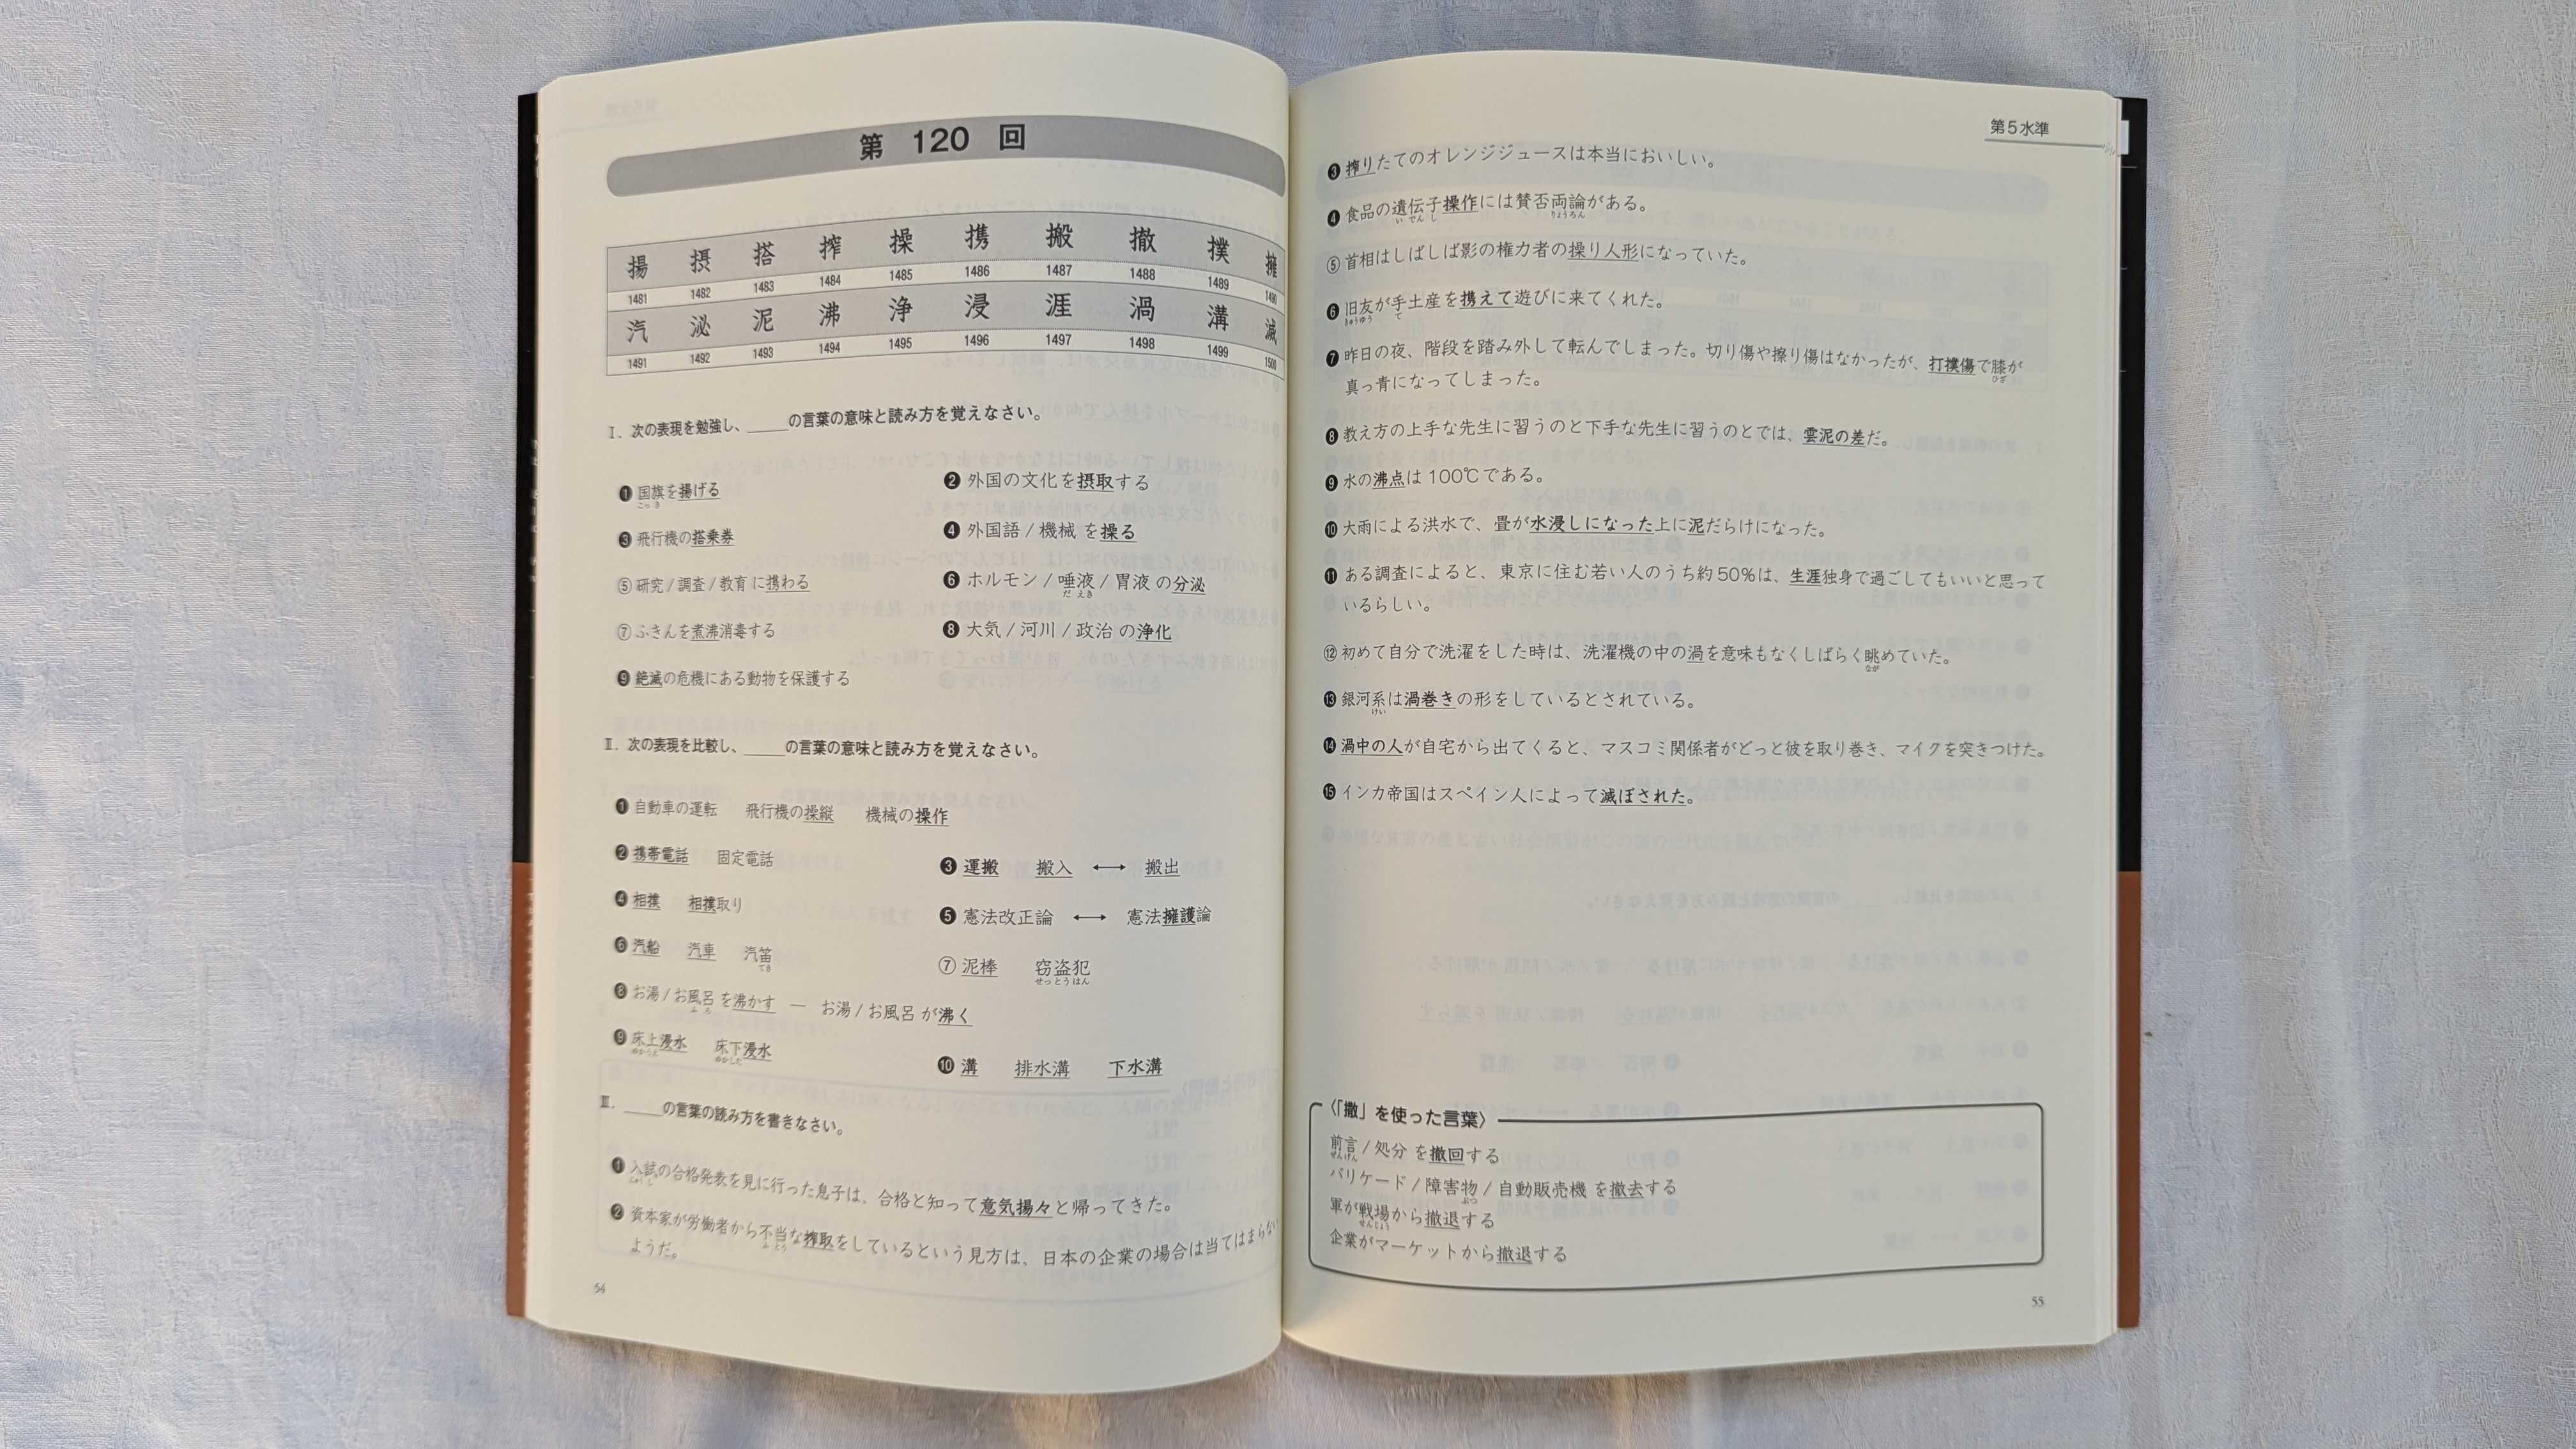 第 120 回
揚 摂 搭 搾 操 携 搬 撤 撲 擁
1481 1482 1483 1484 1485 1486 1487 1488 1489 1490
汽 泌 泥 沸 浄 浸 涯 渦 溝 滅
1491 1492 1493 1494 1495 1496 1497 1498 1499 1500
Ⅰ. 次の表現を勉強し、_____の言葉の意味と読み方を覚えなさい。
❶ 国旗を揚げる
こっき
❷ 外国の文化を摂取する
❸ 飛行機の搭乗券
❹ 外国語/機械 を操る
⑤ 研究/調査/教育 に携わる
❻ ホルモン/唾液/胃液 の分泌
だえき
⑦ ふきんを煮沸消毒する
❽ 大気/河川/政治 の浄化
❾ 絶滅の危機にある動物を保護する
Ⅱ. 次の表現を比較し、_____の言葉の意味と読み方を覚えなさい。
❶ 自動車の運転 飛行機の操縦 機械の操作
❷ 携帯電話 固定電話
❸ 運搬 搬入 ⟷ 搬出
❹ 相撲 相撲取り
❺ 憲法改正論 ⟷ 憲法擁護論
❻ 汽船 汽車 汽笛
てき
⑦ 泥棒 窃盗犯
せっとうはん
❽ お湯/お風呂 を沸かす — お湯/お風呂 が沸く
ふろ
❾ 床上浸水 床下浸水
ゆかうえ ゆかした
❿ 溝 排水溝 下水溝
Ⅲ. _____の言葉の読み方を書きなさい。
❶ 入試の合格発表を見に行った息子は、合格と知って意気揚々と帰ってきた。
にゅうし
❷ 資本家が労働者から不当な搾取をしているという見方は、日本の企業の場合は当てはまらない
ふとう
ようだ。
54
第5水準
❸ 搾りたてのオレンジジュースは本当においしい。
❹ 食品の遺伝子操作には賛否両論がある。
いでんし りょうろん
⑤ 首相はしばしば影の権力者の操り人形になっていた。
❻ 旧友が手土産を携えて遊びに来てくれた。
きゅうゆう て
❼ 昨日の夜、階段を踏み外して転んでしまった。切り傷や擦り傷はなかったが、打撲傷で膝が
ひざ
真っ青になってしまった。
❽ 教え方の上手な先生に習うのと下手な先生に習うのとでは、雲泥の差だ。
❾ 水の沸点は100℃である。
❿ 大雨による洪水で、畳が水浸しになった上に泥だらけになった。
⓫ ある調査によると、東京に住む若い人のうち約50%は、生涯独身で過ごしてもいいと思って
いるらしい。
⑫ 初めて自分で洗濯をした時は、洗濯機の中の渦を意味もなくしばらく眺めていた。
なが
⓭ 銀河系は渦巻きの形をしているとされている。
けい
⓮ 渦中の人が自宅から出てくると、マスコミ関係者がどっと彼を取り巻き、マイクを突きつけた。
⓯ インカ帝国はスペイン人によって滅ぼされた。
〈「撤」を使った言葉〉
前言/処分 を撤回する
ぜんげん
バリケード/障害物/自動販売機 を撤去する
ぶつ
軍が戦場から撤退する
せんじょう
企業がマーケットから撤退する
55